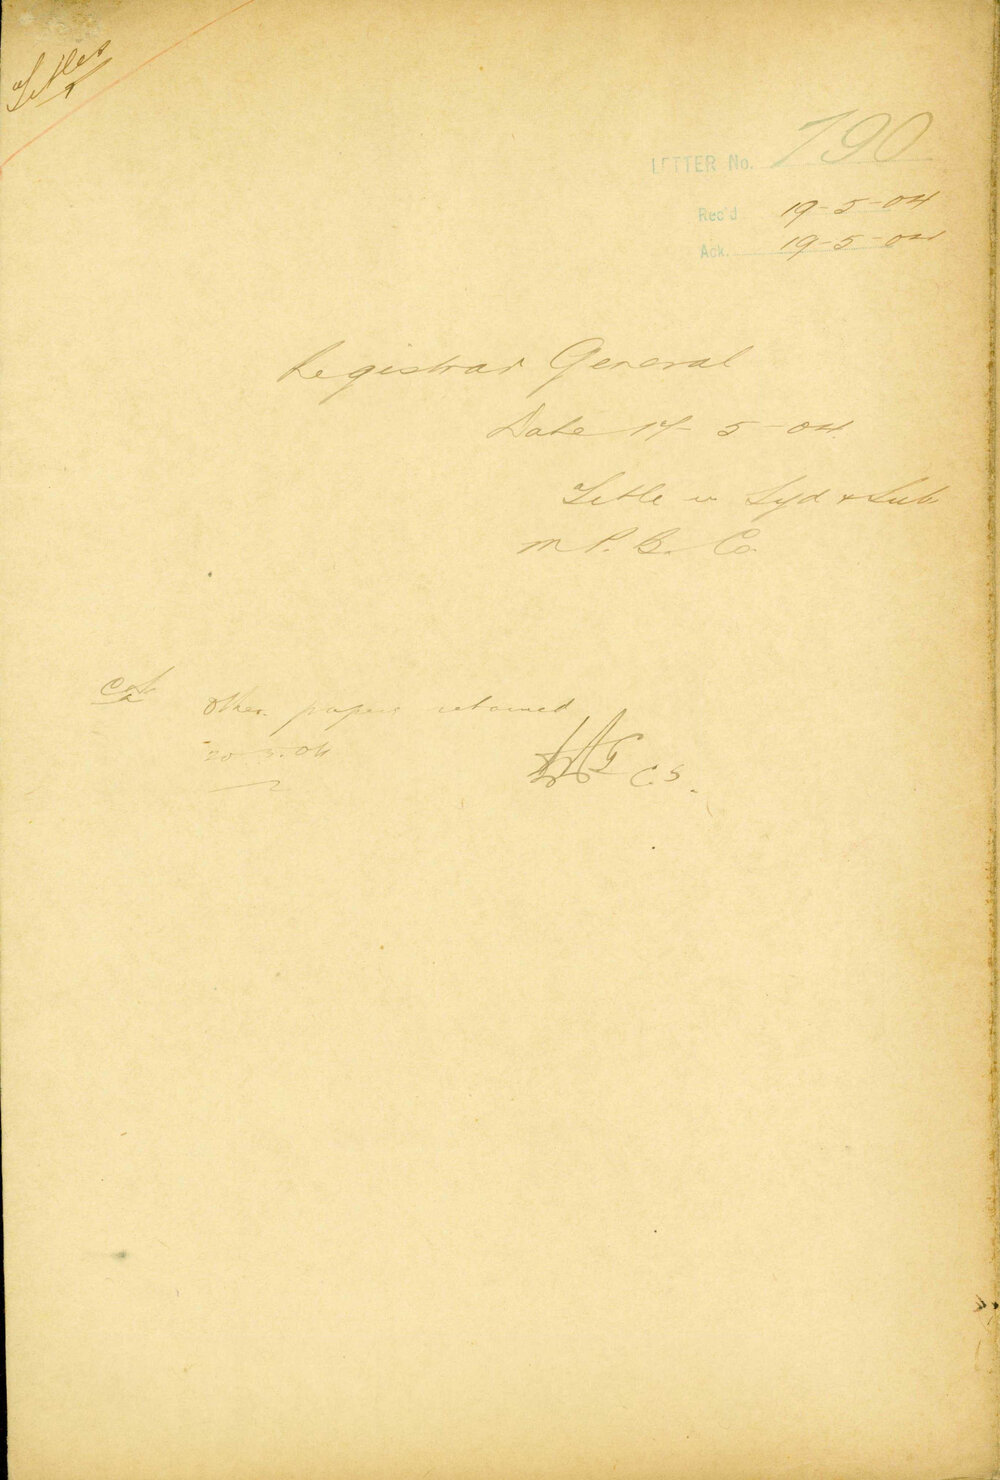 Titles
LETTER No. 790
Rec'd 19-5-04
Ack. 19-5-04
Registrar General
Date 17-5-04
Title in Syd & Sub
M P. B. Co.
other papers returned
20.5.04
C.S.